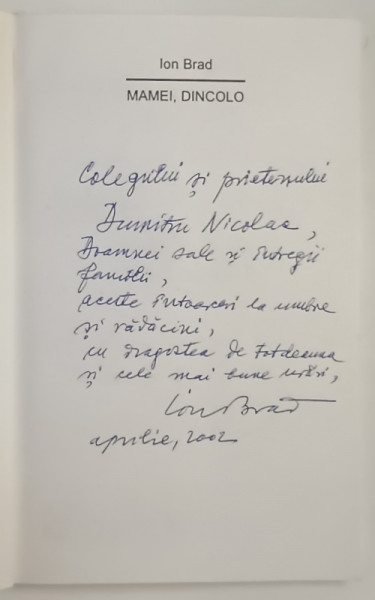 Ion Brad
MAMEI, DINCOLO
Colegului și prietenului
Dumitru Nicolae,
Doamnei sale și întregii
familii,
aceste întoarceri la umbre
și rădăcini,
cu dragostea de totdeauna
și cele mai bune urări,
Ion Brad
aprilie, 2002